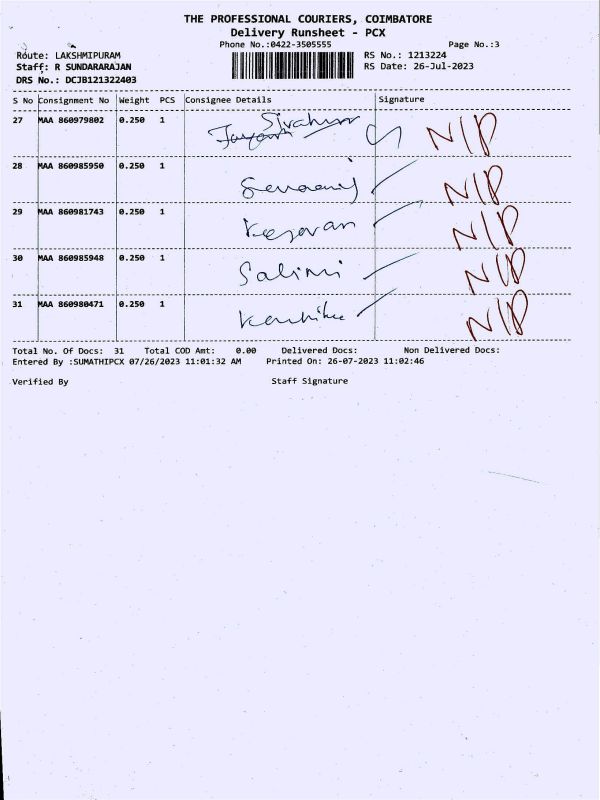 THE PROFESSIONAL COURIERS, COIMBATORE
Delivery Runsheet - PCX
Phone No.:0422-3505555 Page No.:3
Route: LAKSHMIPURAM RS No.: 1213224
Staff: R SUNDARARAJAN RS Date: 26-Jul-2023
DRS No.: DCJB121322403
S No Consignment No Weight PCS Consignee Details Signature
27 MAA 860979802 0.250 1 N/D
28 MAA 860985950 0.250 1 N/D
29 MAA 860981743 0.250 1 Kesavan N/D
30 MAA 860985948 0.250 1 Salini N/D
31 MAA 860980471 0.250 1 N/D
Total No. Of Docs: 31 Total COD Amt: 0.00 Delivered Docs: Non Delivered Docs:
Entered By :SUMATHIPCX 07/26/2023 11:01:32 AM Printed On: 26-07-2023 11:02:46
Verified By Staff Signature